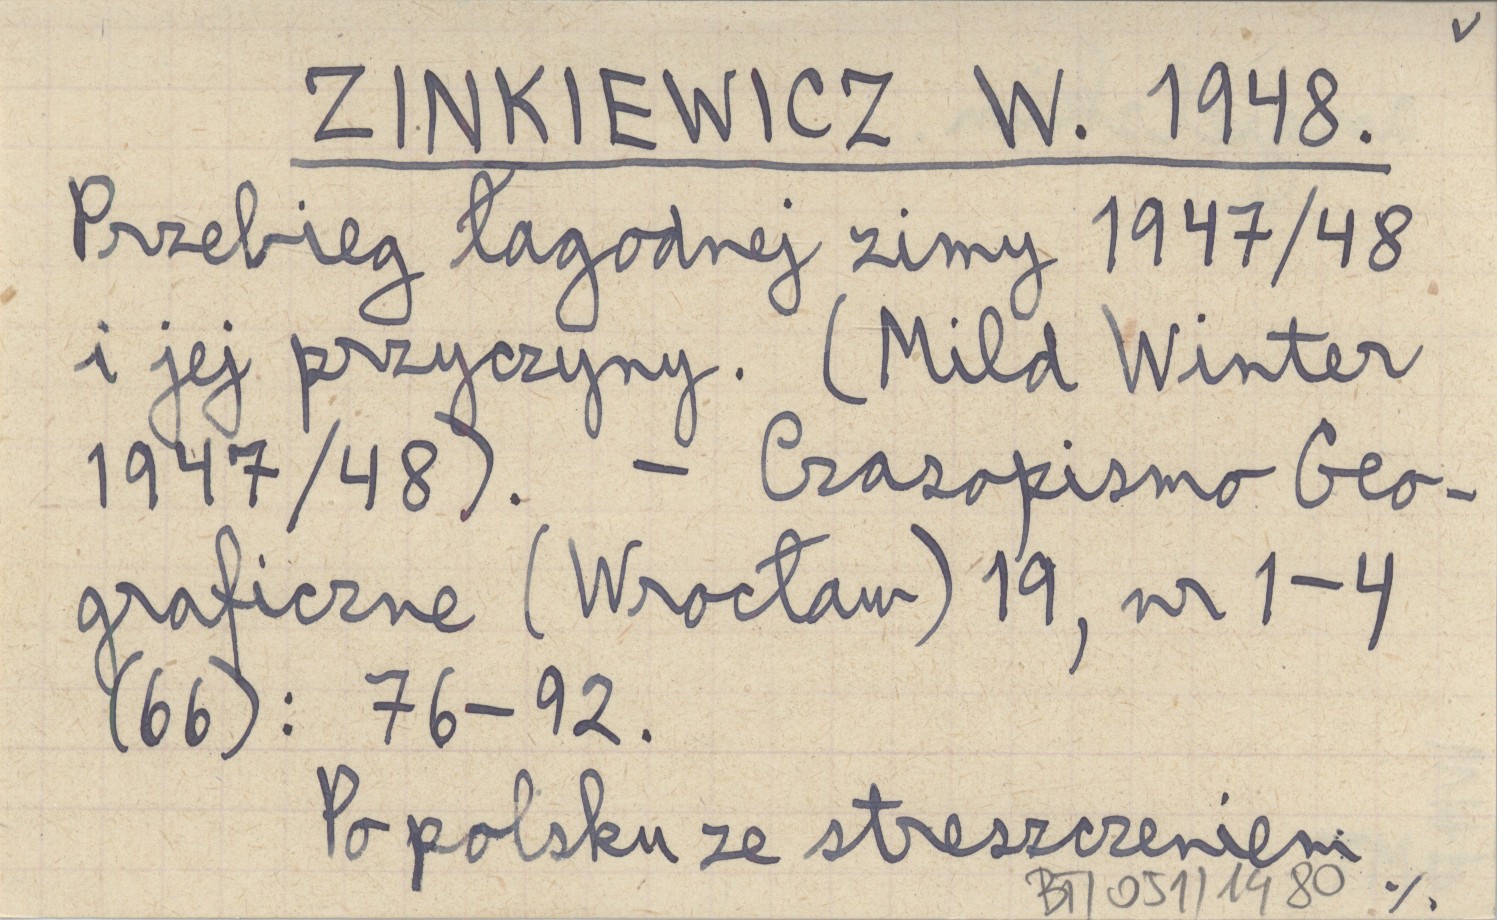 v
ZINKIEWICZ W. 1948.
Przebieg łagodnej zimy 1947/48
i jej przyczyny. (Mild Winter
1947/48). – Czasopismo Geo-
graficzne (Wrocław) 19, nr 1–4
(66): 76–92.
Po polsku ze streszczeniem
BT/051/1980 ·/.